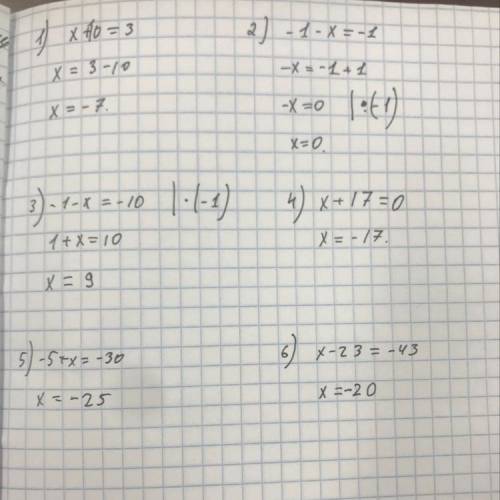 1) x+10 = 3
x = 3 - 10
x = - 7.
2) - 1 - x = -1
-x = -1 + 1
-x = 0 | · (-1)
x = 0.
3) - 1 - x = -10 | · (-1)
1 + x = 10
x = 9
4) x + 17 = 0
x = - 17.
5) -5 + x = -30
x = -25
6) x - 23 = -43
x = -20